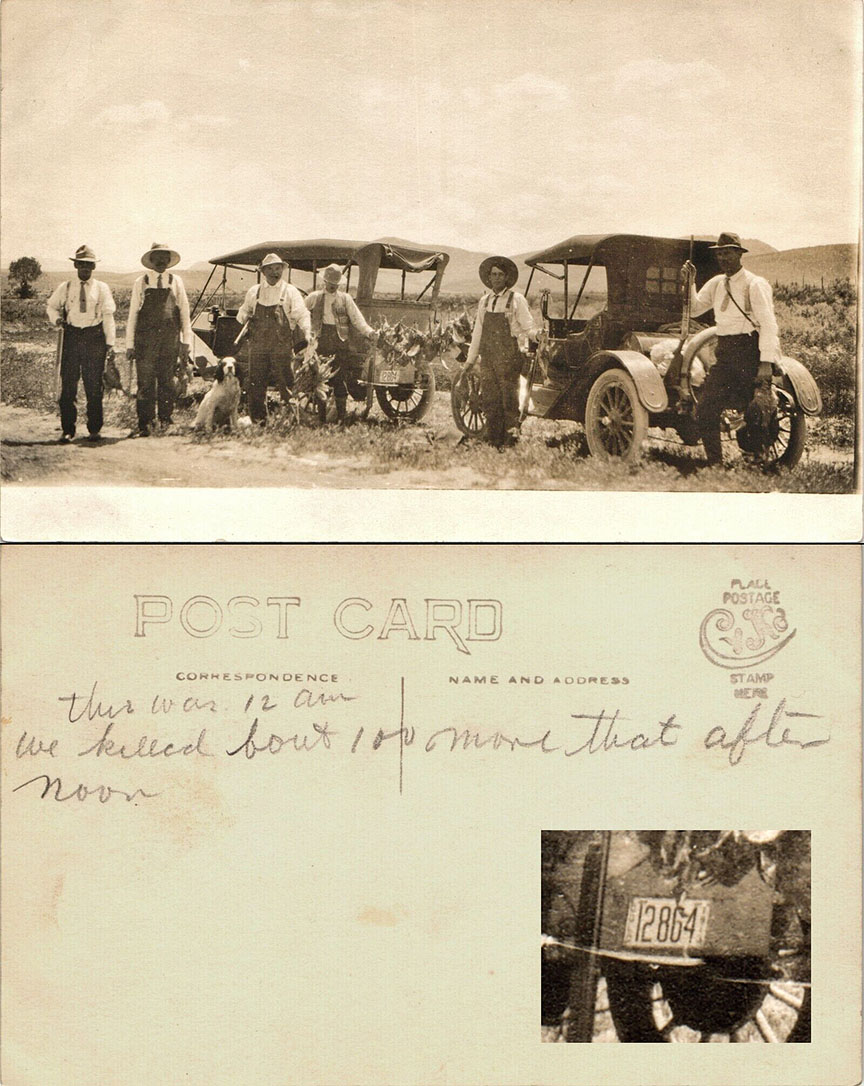 POST CARD
PLACE
POSTAGE
CYKO
STAMP
HERE
CORRESPONDENCE
NAME AND ADDRESS
this was 12 am
we killed bout 100 more that after
noon
12864